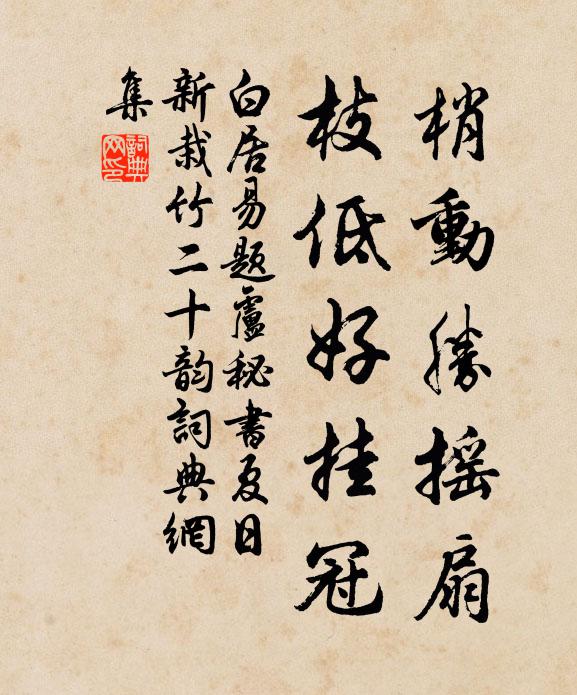 梢動勝摇扇
枝低好挂冠
白居易题盧秘書夏日
新栽竹二十韵詞典網
集
詞典
网印